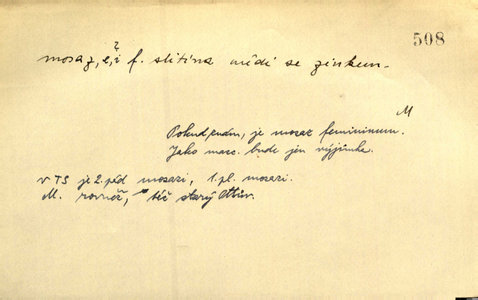 508
mosaz, e, ži f. slitina mědi se zinkem.
M
Pokud vím, je mosaz femininum.
Jako masc. bude jen výjimka.
v TS je 2. pád mosazi, 1. pl. mosazi.
M. rovněž, též starý